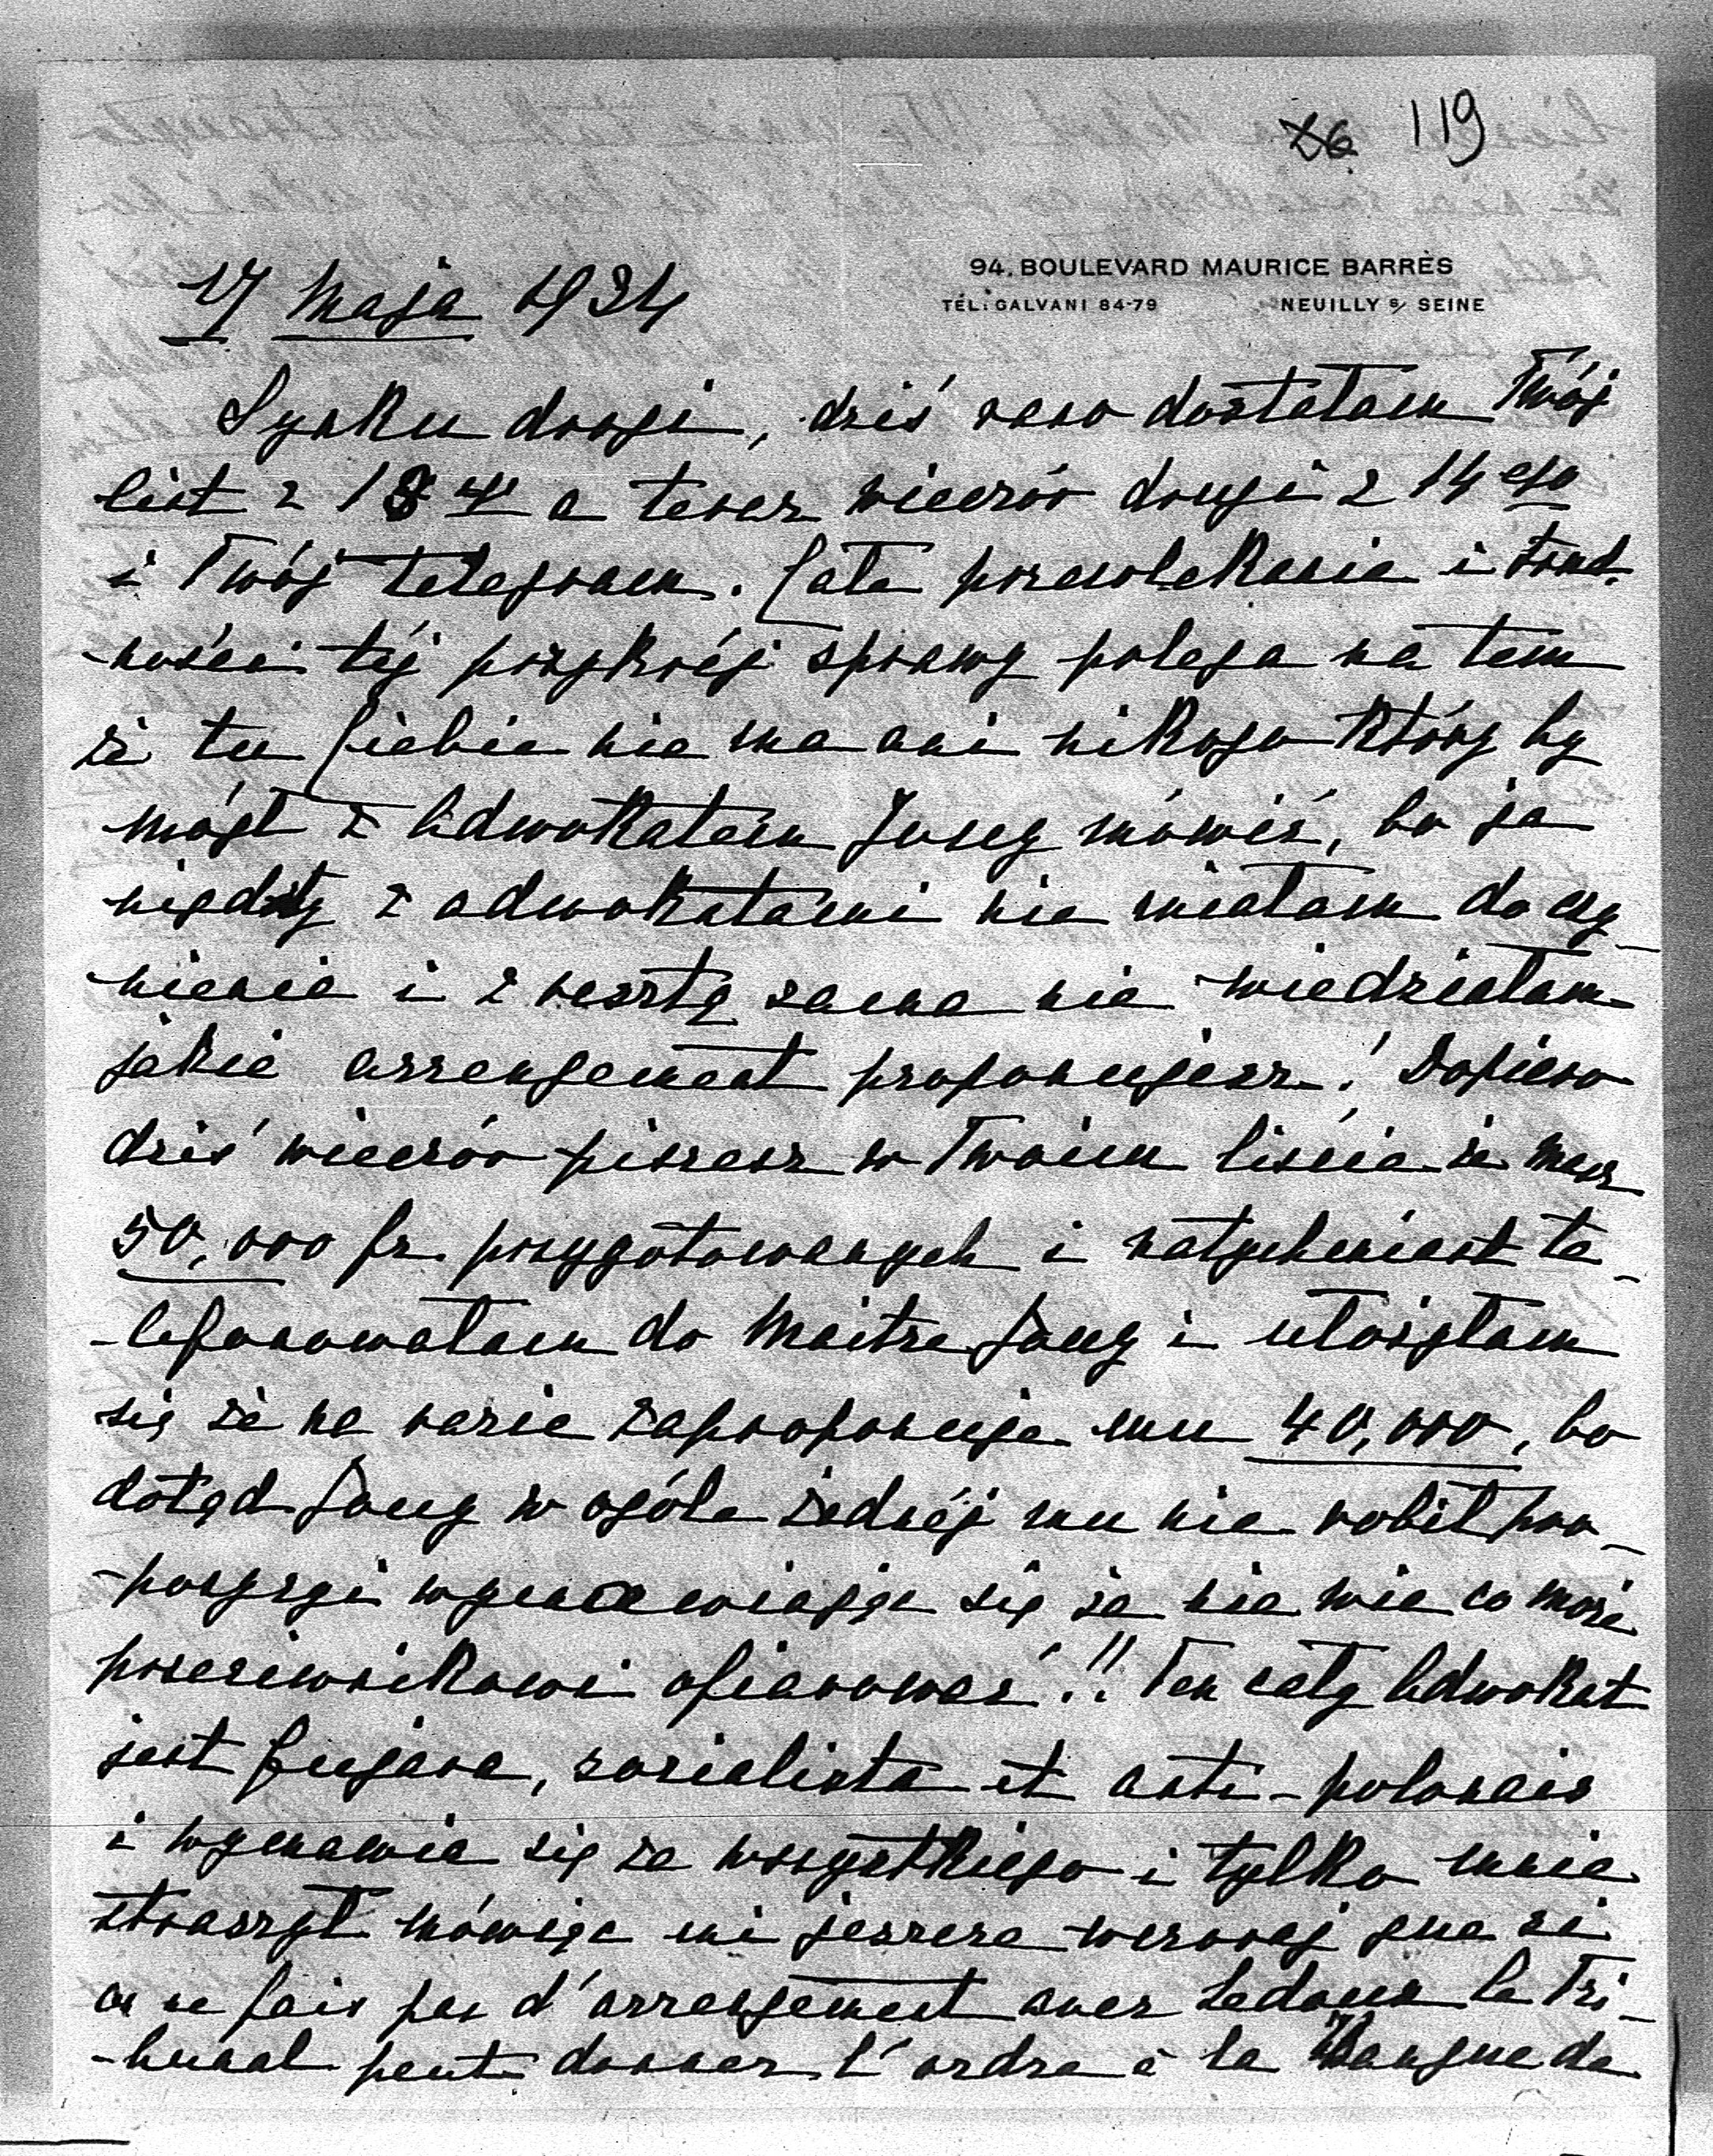 119
94. BOULEVARD MAURICE BARRÈS
TÉL: GALVANI 84-79 NEUILLY s/ SEINE
17 Maja 1934
Synku drogi, dziś rano dostałam Twój
list z a teraz wieczór drugi z 14 ego
i Twój telegram. Cała przewlekanie i trud-
-ności téj przykréj sprawy polega na tem
że tu Ciebie nie ma ani nikogo który by
mógł z Adwokatem Joucy mówić, bo ja
nigdy z adwokatami nie miałam do czy-
nienia i z resztą sama nie wiedziałam
jakie arrengement proponujesz! Dopiero
dziś wieczór piszesz w Twoim liście że masz
50,000 fr. przygotowanych i natychmiast te-
-lefonowałam do Maitre Joucy i ułożyłam
się że na razie zaproponuje mu 40,000, bo
dotąd Joucy w ogóle żadnéj mu nie robił pro-
-pozycji wymawiając się że nie wie co może
przeciwnikowi ofiarować!! Ten cały Adwokat
jest fujara, socialista et anti-polonais
i wymawia się ze wszystkiego i tylko mnie
straszył mówiąc mi jeszcze wczoraj que si
on ne fais pas d'arrengement avec Ledoux le Tri-
-bunal peut donner l'ordre à la Banque de